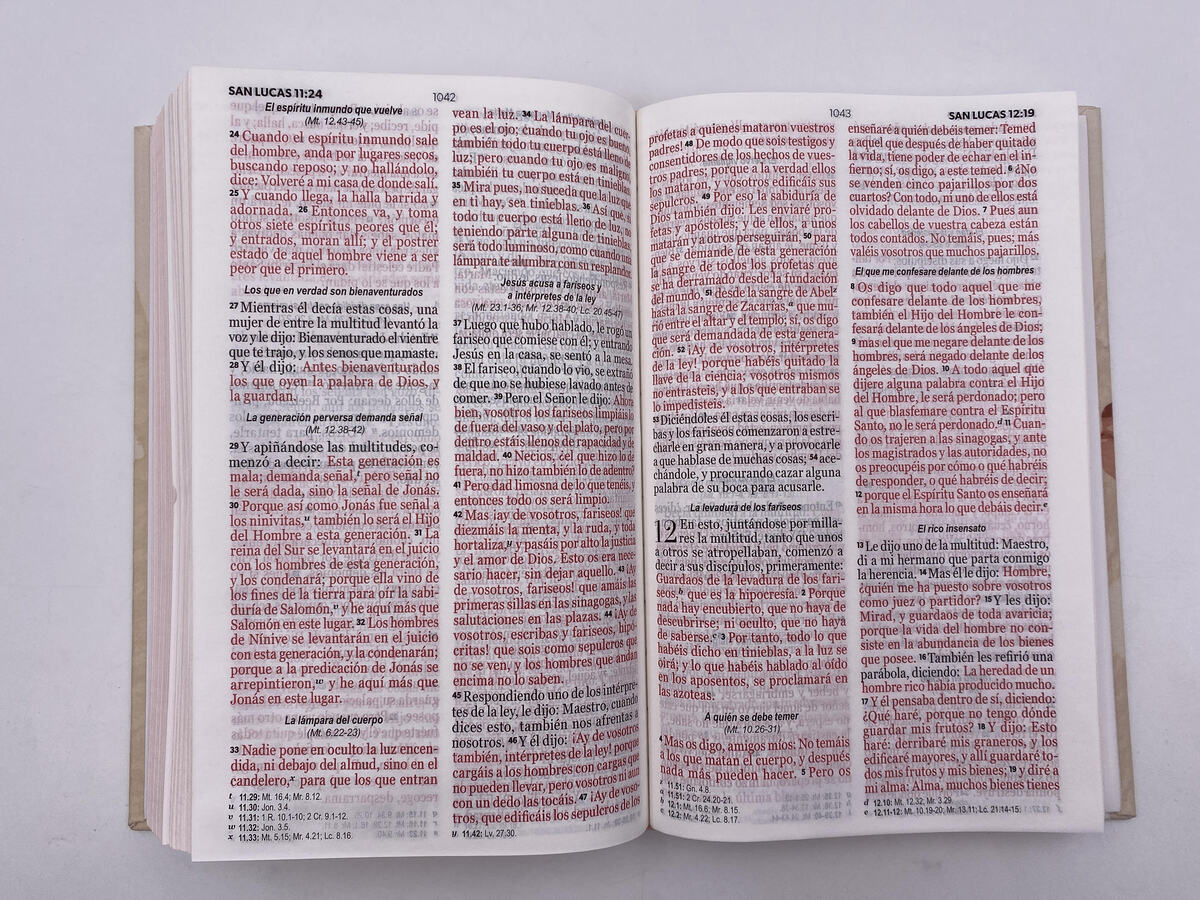 SAN LUCAS 11:24
1042
El espíritu inmundo que vuelve
(Mt. 12.43-45)
24 Cuando el espíritu inmundo sale
del hombre, anda por lugares secos,
buscando reposo; y no hallándolo,
dice: Volveré a mi casa de donde salí.
25 Y cuando llega, la halla barrida y
adornada. 26 Entonces va, y toma
otros siete espíritus peores que él;
y entrados, moran allí; y el postrer
estado de aquel hombre viene a ser
peor que el primero.
Los que en verdad son bienaventurados
27 Mientras él decía estas cosas, una
mujer de entre la multitud levantó la
voz y le dijo: Bienaventurado el vientre
que te trajo, y los senos que mamaste.
28 Y él dijo: Antes bienaventurados
los que oyen la palabra de Dios, y
la guardan.
La generación perversa demanda señal
(Mt. 12.38-42)
29 Y apiñándose las multitudes, co-
menzó a decir: Esta generación es
mala; demanda señal,t pero señal no
le será dada, sino la señal de Jonás.
30 Porque así como Jonás fue señal a
los ninivitas,u también lo será el Hijo
del Hombre a esta generación. 31 La
reina del Sur se levantará en el juicio
con los hombres de esta generación,
y los condenará; porque ella vino de
los fines de la tierra para oír la sabi-
duría de Salomón,v y he aquí más que
Salomón en este lugar. 32 Los hombres
de Nínive se levantarán en el juicio
con esta generación, y la condenarán;
porque a la predicación de Jonás se
arrepintieron,w y he aquí más que
Jonás en este lugar.
La lámpara del cuerpo
(Mt. 6.22-23)
33 Nadie pone en oculto la luz encen-
dida, ni debajo del almud, sino en el
candelero,x para que los que entran
t 11.29: Mt. 16.4; Mr. 8.12.
u 11.30: Jon. 3.4.
v 11.31: 1 R. 10.1-10; 2 Cr. 9.1-12.
w 11.32: Jon. 3.5.
x 11.33: Mt. 5.15; Mr. 4.21; Lc. 8.16.
vean la luz. 34 La lámpara del cuer-
po es el ojo; cuando tu ojo es bueno,
también todo tu cuerpo está lleno de
luz; pero cuando tu ojo es maligno,
también tu cuerpo está en tinieblas.
35 Mira pues, no suceda que la luz que
en ti hay, sea tinieblas. 36 Así que, si
todo tu cuerpo está lleno de luz, no
teniendo parte alguna de tinieblas,
será todo luminoso, como cuando una
lámpara te alumbra con su resplandor.
Jesús acusa a fariseos y
a intérpretes de la ley
(Mt. 23.1-36; Mr. 12.38-40; Lc. 20.45-47)
37 Luego que hubo hablado, le rogó un
fariseo que comiese con él; y entrando
Jesús en la casa, se sentó a la mesa.
38 El fariseo, cuando lo vio, se extrañó
de que no se hubiese lavado antes de
comer. 39 Pero el Señor le dijo: Ahora
bien, vosotros los fariseos limpiáis lo
de fuera del vaso y del plato, pero por
dentro estáis llenos de rapacidad y de
maldad. 40 Necios, ¿el que hizo lo de
fuera, no hizo también lo de adentro?
41 Pero dad limosna de lo que tenéis, y
entonces todo os será limpio.
42 Mas ¡ay de vosotros, fariseos! que
diezmáis la menta, y la ruda, y toda
hortaliza,y y pasáis por alto la justicia
y el amor de Dios. Esto os era nece-
sario hacer, sin dejar aquello. 43 ¡Ay
de vosotros, fariseos! que amáis las
primeras sillas en las sinagogas, y las
salutaciones en las plazas. 44 ¡Ay de
vosotros, escribas y fariseos, hipó-
critas! que sois como sepulcros que
no se ven, y los hombres que andan
encima no lo saben.
45 Respondiendo uno de los intérpre-
tes de la ley, le dijo: Maestro, cuando
dices esto, también nos afrentas a
nosotros. 46 Y él dijo: ¡Ay de vosotros
también, intérpretes de la ley! porque
cargáis a los hombres con cargas que
no pueden llevar, pero vosotros ni aun
con un dedo las tocáis. 47 ¡Ay de voso-
tros, que edificáis los sepulcros de los
y 11.42: Lv. 27.30.
1043
SAN LUCAS 12:19
profetas a quienes mataron vuestros
padres! 48 De modo que sois testigos y
consentidores de los hechos de vues-
tros padres; porque a la verdad ellos
los mataron, y vosotros edificáis sus
sepulcros. 49 Por eso la sabiduría de
Dios también dijo: Les enviaré pro-
fetas y apóstoles; y de ellos, a unos
matarán y a otros perseguirán, 50 para
que se demande de esta generación
la sangre de todos los profetas que
se ha derramado desde la fundación
del mundo, 51 desde la sangre de Abelz
hasta la sangre de Zacarías,a que mu-
rió entre el altar y el templo; sí, os digo
que será demandada de esta genera-
ción. 52 ¡Ay de vosotros, intérpretes
de la ley! porque habéis quitado la
llave de la ciencia; vosotros mismos
no entrasteis, y a los que entraban se
lo impedisteis.
53 Diciéndoles él estas cosas, los escri-
bas y los fariseos comenzaron a estre-
charle en gran manera, y a provocarle
a que hablase de muchas cosas; 54 ace-
chándole, y procurando cazar alguna
palabra de su boca para acusarle.
La levadura de los fariseos
12 En esto, juntándose por milla-
res la multitud, tanto que unos
a otros se atropellaban, comenzó a
decir a sus discípulos, primeramente:
Guardaos de la levadura de los fari-
seos,b que es la hipocresía. 2 Porque
nada hay encubierto, que no haya de
descubrirse; ni oculto, que no haya
de saberse.c 3 Por tanto, todo lo que
habéis dicho en tinieblas, a la luz se
oirá; y lo que habéis hablado al oído
en los aposentos, se proclamará en
las azoteas.
A quién se debe temer
(Mt. 10.26-31)
4 Mas os digo, amigos míos: No temáis
a los que matan el cuerpo, y después
nada más pueden hacer. 5 Pero os
z 11.51: Gn. 4.8.
a 11.51: 2 Cr. 24.20-21.
b 12.1: Mt. 16.6; Mr. 8.15.
c 12.2: Mr. 4.22; Lc. 8.17.
enseñaré a quién debéis temer: Temed
a aquel que después de haber quitado
la vida, tiene poder de echar en el in-
fierno; sí, os digo, a este temed. 6 ¿No
se venden cinco pajarillos por dos
cuartos? Con todo, ni uno de ellos está
olvidado delante de Dios. 7 Pues aun
los cabellos de vuestra cabeza están
todos contados. No temáis, pues; más
valéis vosotros que muchos pajarillos.
El que me confesare delante de los hombres
8 Os digo que todo aquel que me
confesare delante de los hombres,
también el Hijo del Hombre le con-
fesará delante de los ángeles de Dios;
9 mas el que me negare delante de los
hombres, será negado delante de los
ángeles de Dios. 10 A todo aquel que
dijere alguna palabra contra el Hijo
del Hombre, le será perdonado; pero
al que blasfemare contra el Espíritu
Santo, no le será perdonado.d 11 Cuan-
do os trajeren a las sinagogas, y ante
los magistrados y las autoridades, no
os preocupéis por cómo o qué habréis
de responder, o qué habréis de decir;
12 porque el Espíritu Santo os enseñará
en la misma hora lo que debáis decir.e
El rico insensato
13 Le dijo uno de la multitud: Maestro,
di a mi hermano que parta conmigo
la herencia. 14 Mas él le dijo: Hombre,
¿quién me ha puesto sobre vosotros
como juez o partidor? 15 Y les dijo:
Mirad, y guardaos de toda avaricia;
porque la vida del hombre no con-
siste en la abundancia de los bienes
que posee. 16 También les refirió una
parábola, diciendo: La heredad de un
hombre rico había producido mucho.
17 Y él pensaba dentro de sí, diciendo:
¿Qué haré, porque no tengo dónde
guardar mis frutos? 18 Y dijo: Esto
haré: derribaré mis graneros, y los
edificaré mayores, y allí guardaré to-
dos mis frutos y mis bienes; 19 y diré a
mi alma: Alma, muchos bienes tienes
d 12.10: Mt. 12.32; Mr. 3.29.
e 12.11-12: Mt. 10.19-20; Mr. 13.11; Lc. 21.14-15.